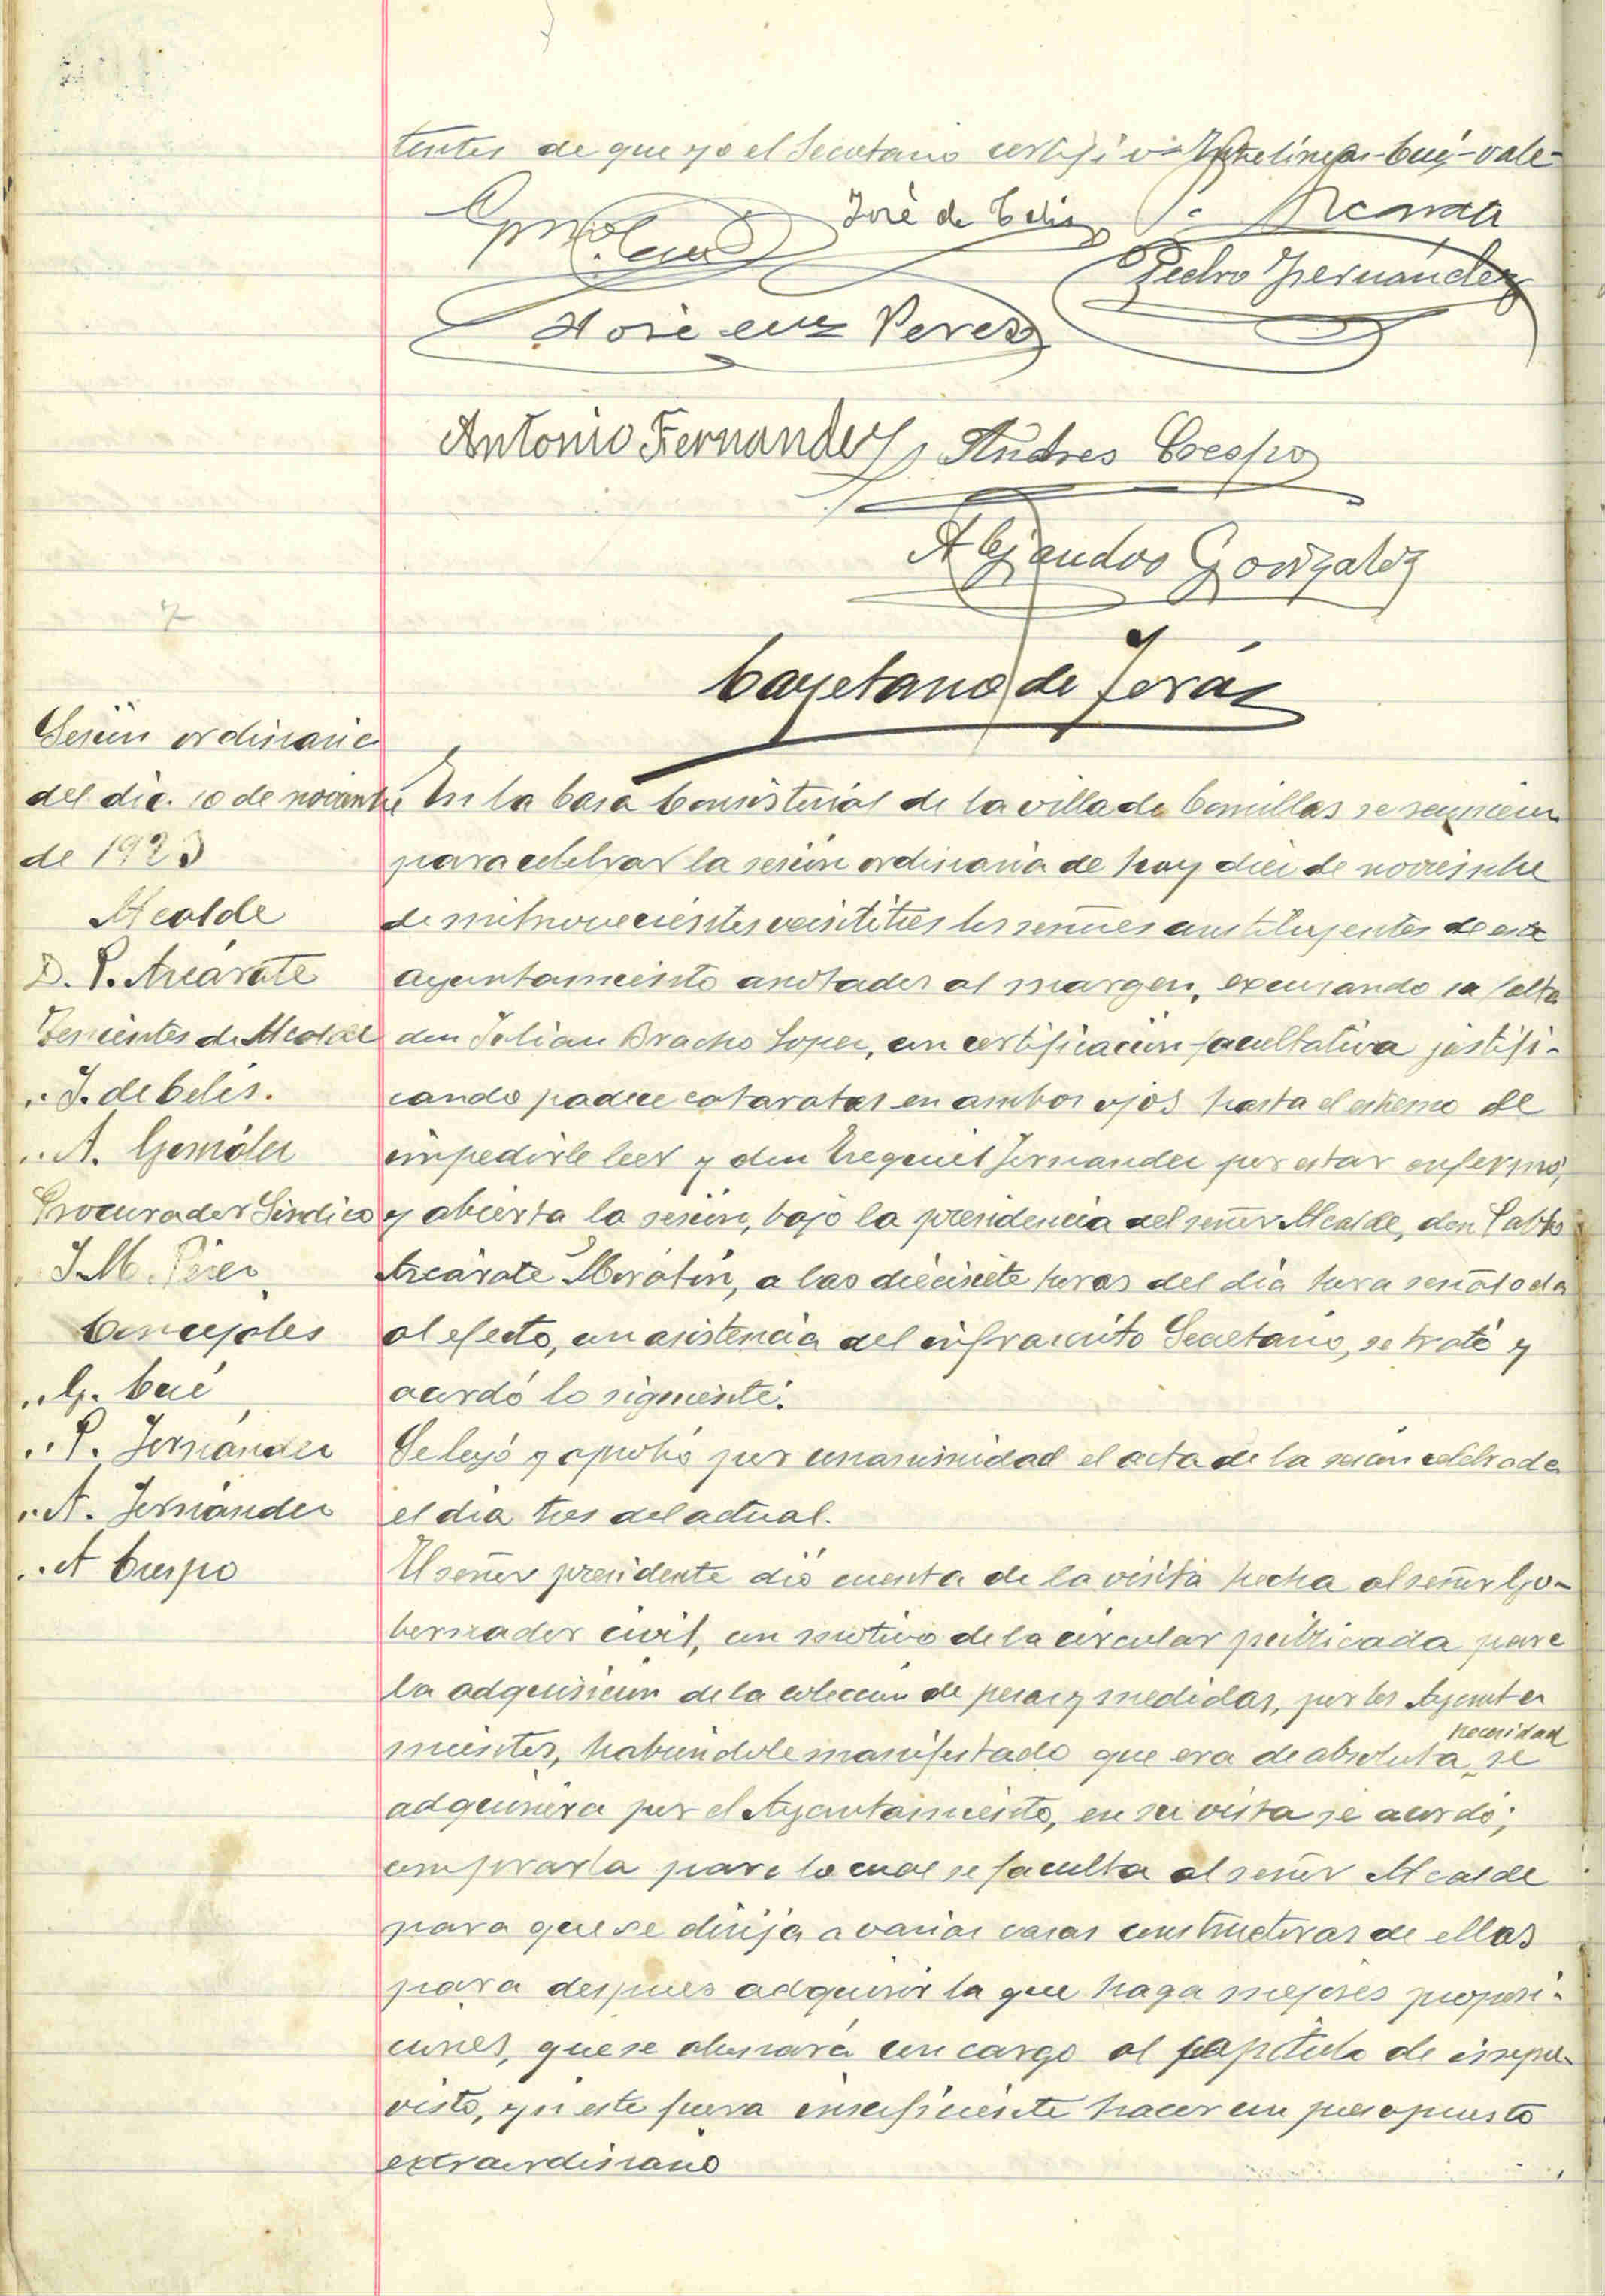 tentes de que yo el Secretario certifico = Entrelineas - Cué - vale -
José de Celis
P. Azcárate
Pedro Fernández
José Mª Perez
Antonio Fernandez Andres Crespo
Alejandro Gonzalez
Cayetano de Terán
Sesión ordinaria
del dia 10 de noviembre
de 1923
Alcalde
D. P. Azcárate
Tenientes de Alcalde
" J. de Celis.
" A. González
Procurador Síndico
J. M. Pérez
Concejales
" G. Cué
" P. Fernández
" A. Fernández
" A Crespo
En la Casa Consistorial de la villa de Comillas se reunieron
para celebrar la sesión ordinaria de hoy diez de noviembre
de mil novecientos veintitres los señores constituyentes de este
Ayuntamiento anotados al margen, excusando su falta
don Julian Bracho Lopez, con certificación facultativa justifi-
cando padece cataratas en ambos ojos hasta el extremo de
impedirle leer y don Ezequiel Fernandez por estar enfermo,
y abierta la sesión, bajo la presidencia del señor Alcalde, don Pablo
Azcárate Moratin, a las diecisiete horas del dia hora señalada
al efecto, con asistencia del infrascrito Secretario, se trató y
acordó lo siguiente:
Se leyó y aprobó por unanimidad el acta de la sesión celebrada
el dia tres del actual.
El señor presidente dió cuenta de la visita hecha al señor Go-
bernador civil, con motivo de la circular publicada para
la adquisición de la colección de pesas y medidas, por los Ayunta
mientos, habiendole manifestado que era de absoluta necesidad se
adquiriera por el Ayuntamiento, en su vista se acordó;
comprarla para lo cual se faculta al señor Alcalde
para que se dirija a varias casas constructoras de ellas
para despues adquirir la que haga mejores proposi-
ciones, que se abonará con cargo al capitulo de impre-
visto, y si este fuera insuficiente hacer un presupuesto
extraordinario